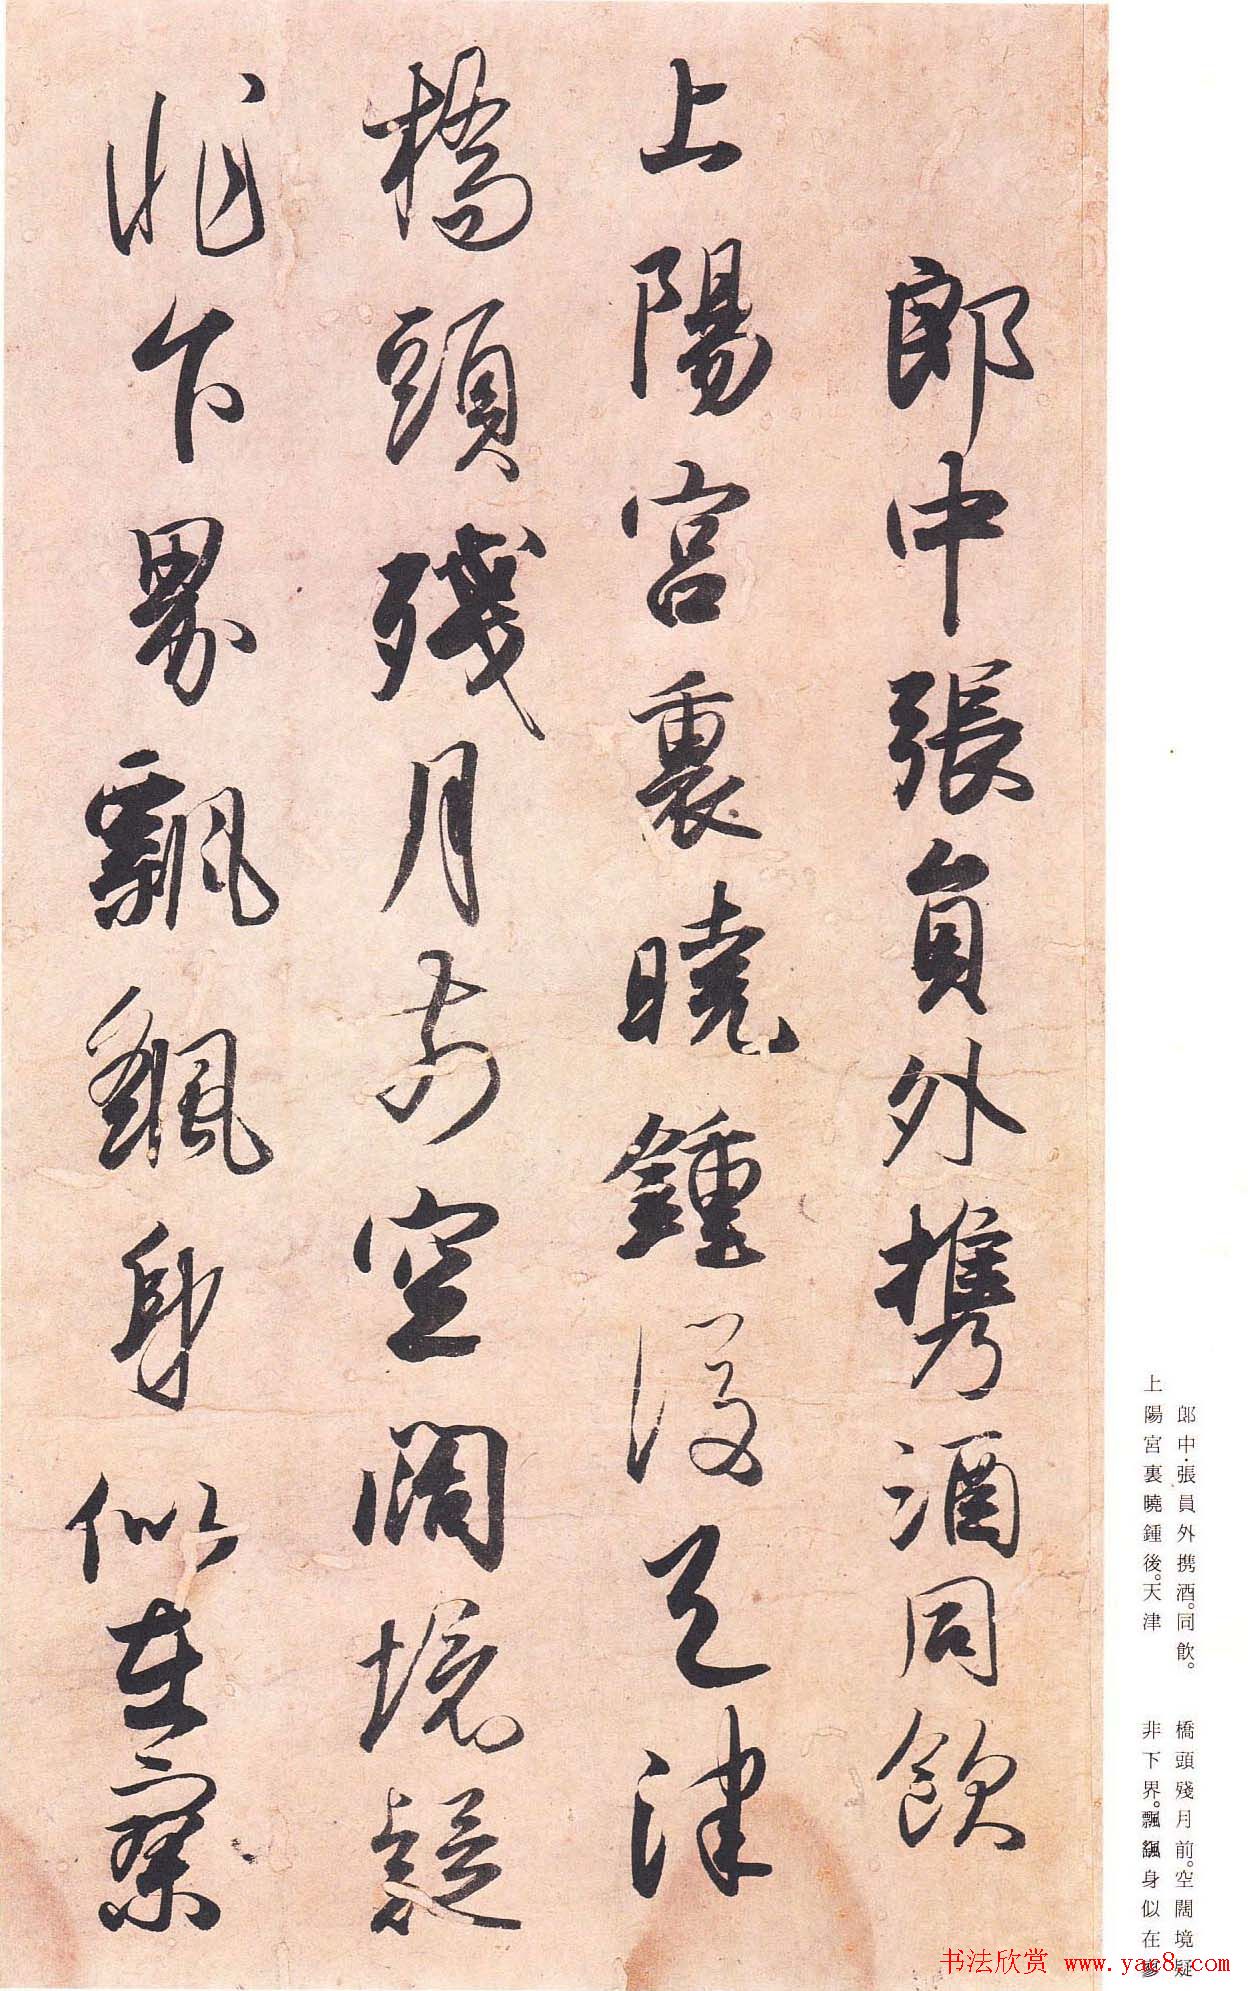 郎中張員外携酒同飲
上陽宮裏曉鍾後天津
橋頭殘月前空闊境疑
非下界飄飖身似在寥
郎中・張員外携酒。同飲。
上陽宮裏曉鍾後。天津
橋頭殘月前。空闊境疑
非下界。飄飖身似在寥
书法欣赏 www.yac8.com